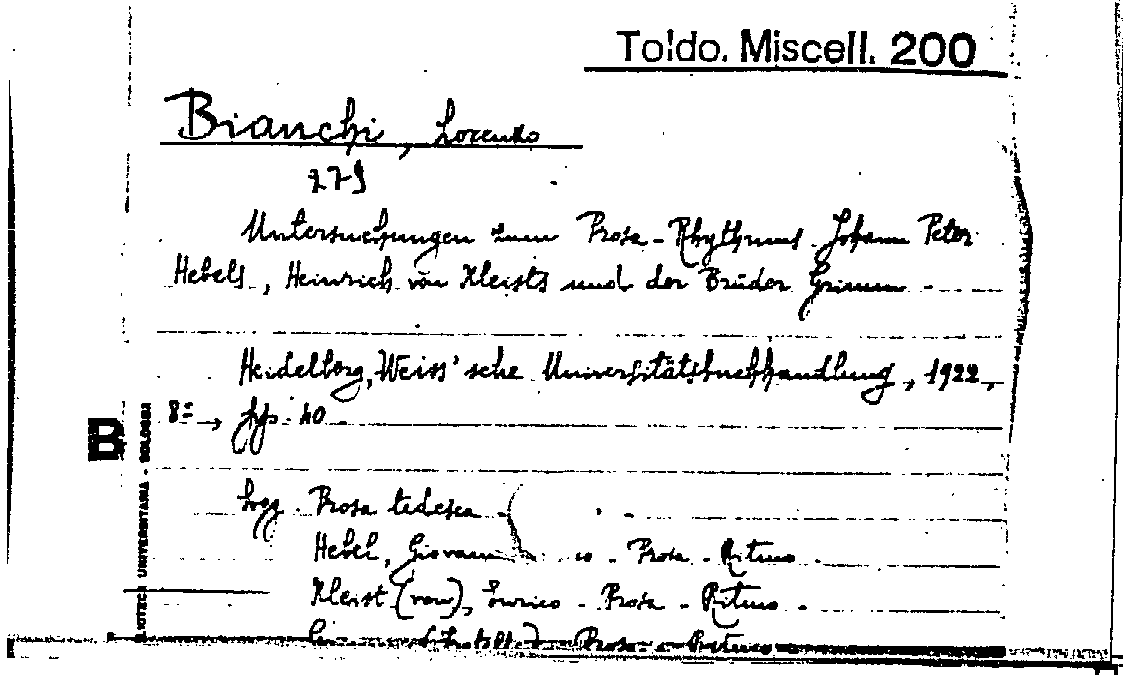 Toldo. Miscell. 200
Bianchi, Lorenzo
279
Untersuchungen zum Prosa-Rhythmus Johann Peter
Hebels, Heinrich von Kleists und der Brüder Grimm
Heidelberg, Weiss'sche Universitätsbuchhandlung, 1922,
8º, pp. 40
sogg. Prosa tedesca
Hebel, Giovanni - Prosa - Ritmo
Kleist (von), Enrico - Prosa - Ritmo
Prosa - Ritmo
B
UNIVERSITARIA - BOLOGNA